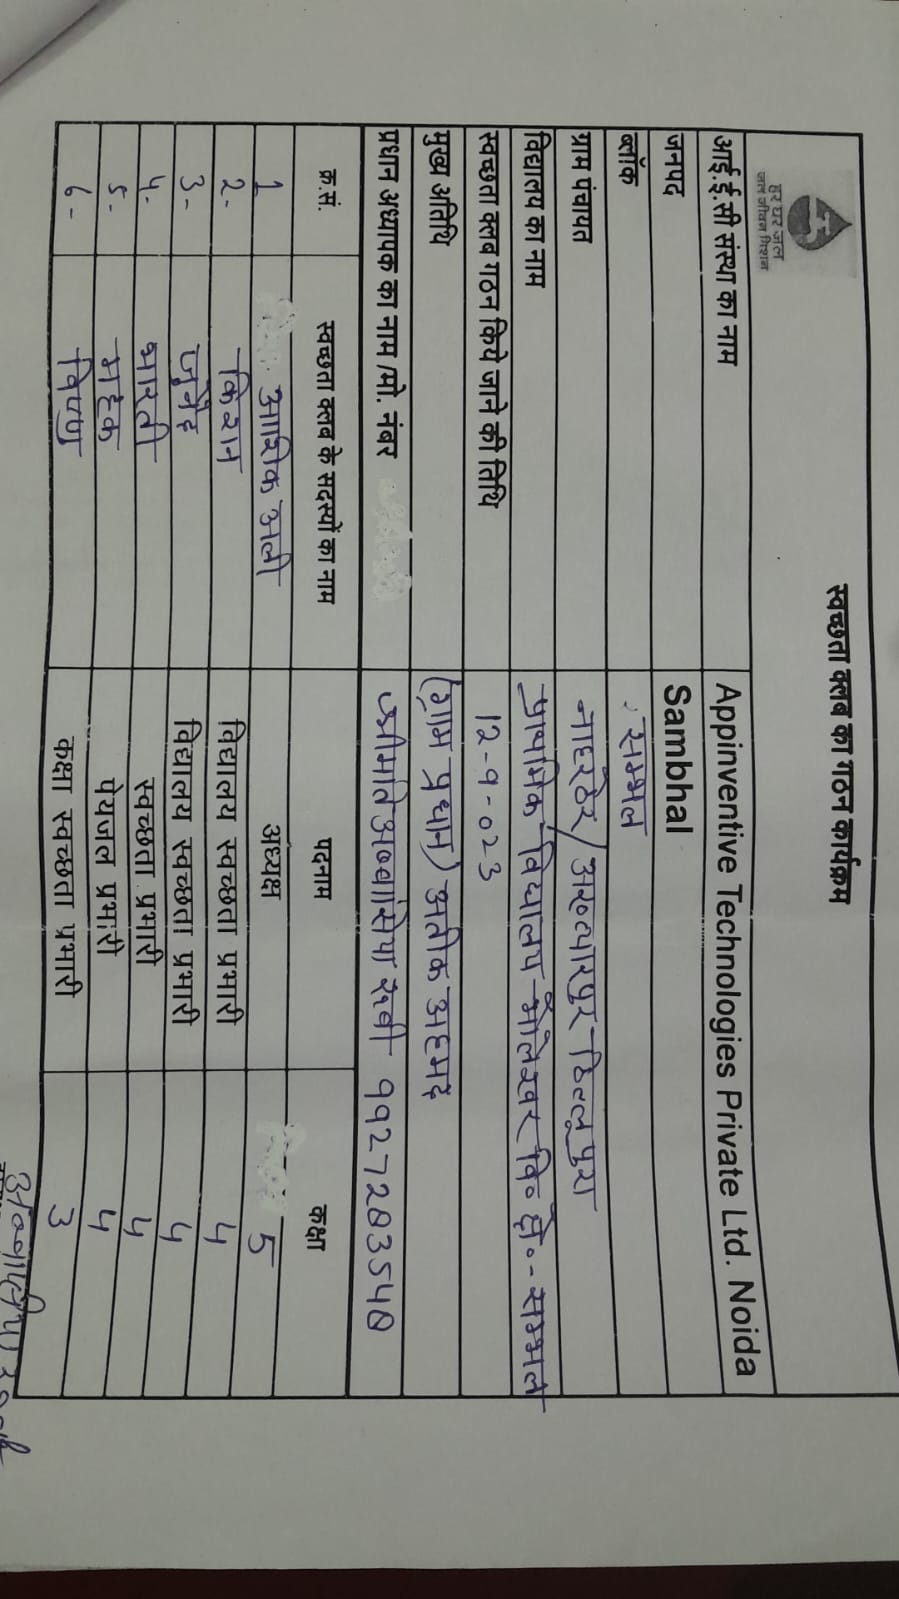 स्वच्छता क्लब का गठन कार्यक्रम
हर घर जल
जल जीवन मिशन
आई.ई.सी संस्था का नाम Appinventive Technologies Private Ltd. Noida
जनपद Sambhal
ब्लॉक सम्भल
ग्राम पंचायत नाहरठेर/अख्त्यारपुर ढिल्लूपुरा
विद्यालय का नाम प्राथमिक विद्यालय भोलेश्वर वि० क्षे०-सम्भल
स्वच्छता क्लब गठन किये जाने की तिथि 12-9-023
मुख्य अतिथि (ग्राम प्रधान) अतीक अहमद
प्रधान अध्यापक का नाम /मो. नंबर 9927283548
क्र.सं. स्वच्छता क्लब के सदस्यों का नाम पदनाम कक्षा
1 आशिक अली अध्यक्ष 5
2- किशन विद्यालय स्वच्छता प्रभारी 4
3- जुनैद विद्यालय स्वच्छता प्रभारी 4
4- भारती स्वच्छता प्रभारी 4
5- महक पेयजल प्रभारी 4
6- विष्णु कक्षा स्वच्छता प्रभारी 3